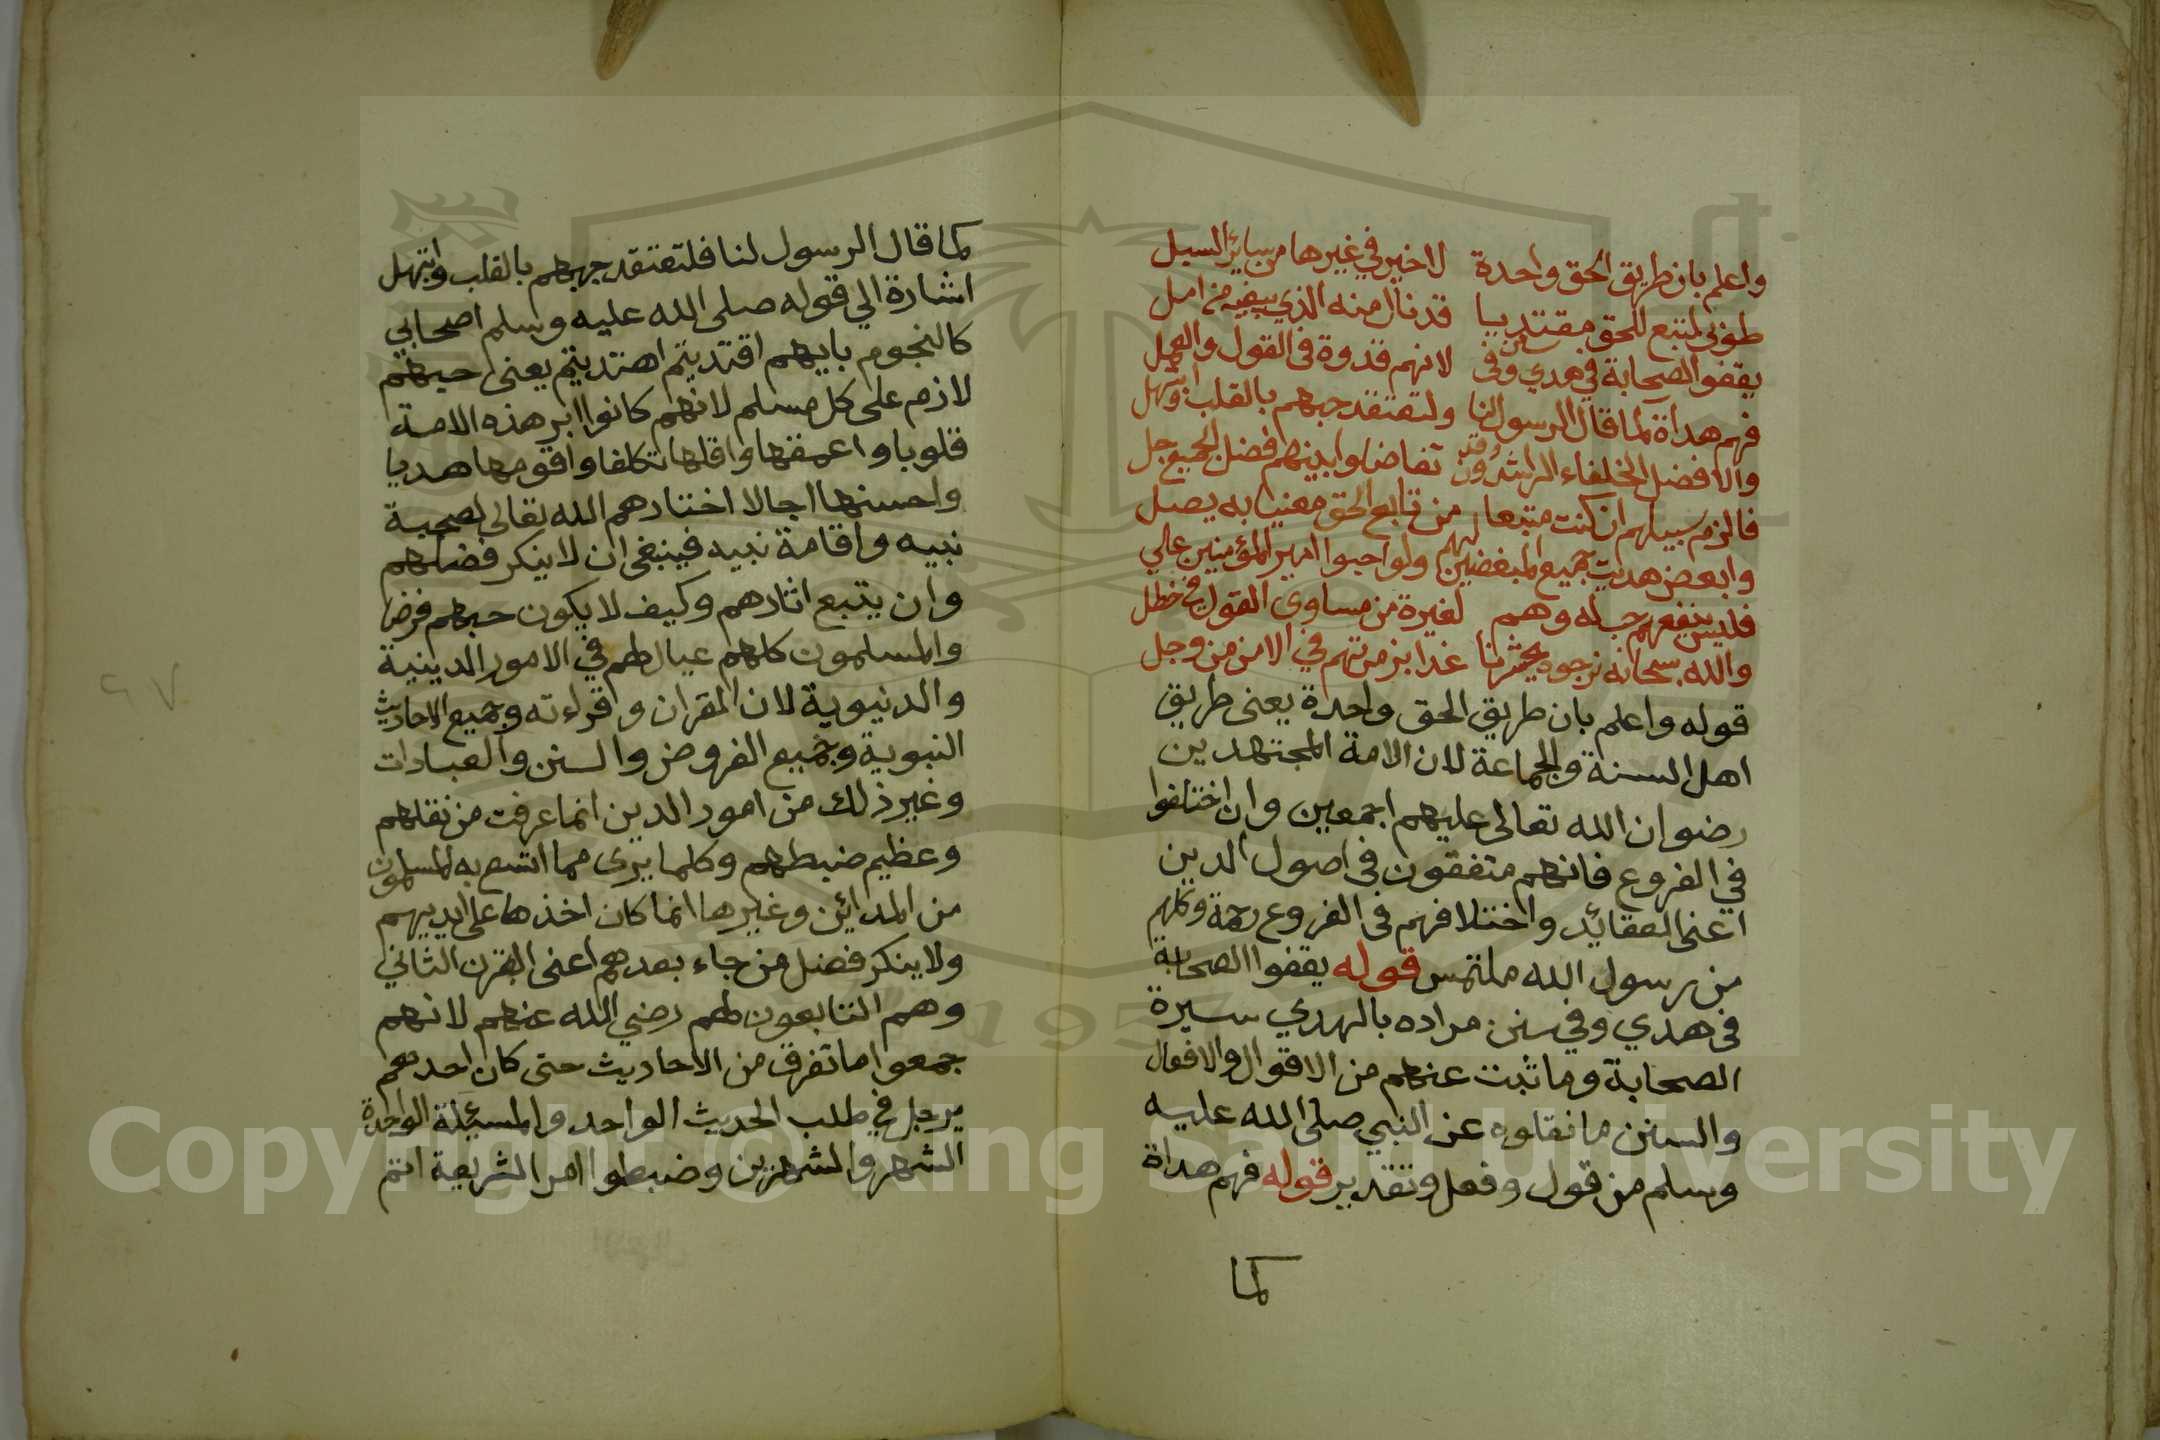 واعلم بان طريق الحق واحدة لا خير في غيرها من سائر السبل
طوبى لمتبع للحق مقتديا قد نال منه الذي يبغيه من امل
يقفوا الصحابة في هدي وفى سنن لانهم قدوة فى القول والعمل
فهم هداة كما قال الرسول لنا ولتعتقد حبهم بالقلب وابتهل
والافضل الخلفاء الراشدون وقد تفاضلوا بينهم فضل الجميع جل
فالزم سبيلهم ان كنت متبعا من تابع الحق معنيا به يصل
وابغض هديت جميع المبغضين لهم ولو احبوا امير المؤمنين علي
فليس ينفعهم حب له وهم لغيره من مساوى القول في خطل
والله سبحانه نرجوه يحشرنا غدا بزمرتهم في الامن من وجل
قوله واعلم بان طريق الحق واحدة يعنى طريق
اهل السنة والجماعة لان الامة المجتهدين
رضوان الله تعالى عليهم اجمعين وان اختلفوا
في الفروع فانهم متفقون فى اصول الدين
اعنى العقائد واختلافهم فى الفروع رحمة وكلهم
من رسول الله ملتمس قوله يقفوا الصحابة
فى هدي وفي سنن مراده بالهدي سيرة
الصحابة وما ثبت عنهم من الاقوال والافعال
والسنن ما نقلوه عن النبي صلى الله عليه
وسلم من قول وفعل وتقدير قوله فهم هداة
كما
كما قال الرسول لنا فلتعتقد حبهم بالقلب وابتهل
اشارة الي قوله صلى الله عليه وسلم اصحابي
كالنجوم بايهم اقتديتم اهتديتم يعنى حبهم
لازم على كل مسلم لانهم كانوا ابر هذه الامة
قلوبا واعمقها واقلها تكلفا واقومها هديا
واحسنها اجالا اختارهم الله تعالى لصحبة
نبيه واقامة نبيه فينبغى ان لا ينكر فضلهم
وان يتبع اثارهم وكيف لا يكون حبهم فرضا
والمسلمون كلهم عيال لهم في الامور الدينية
والدنيوية لان القران وقراءته وجميع الاحاديث
النبوية وجميع الفروض والسنن والعبادات
وغير ذلك من امور الدين انما عرفت من نقلهم
وعظيم ضبطهم وكلما يرى مما اتسع به المسلمون
من المدائن وغيرها انما كان اخذها على ايديهم
ولا ينكر فضل من جاء بعدهم اعنى القرن الثاني
وهم التابعون لهم رضي الله عنهم لانهم
جمعوا ما تفرق من الاحاديث حتى كان احدهم
يرحل في طلب الحديث الواحد والمسئلة الواحدة
الشهر والشهرين وضبطوا امر الشريعة اتم
Copyright © King Saud University